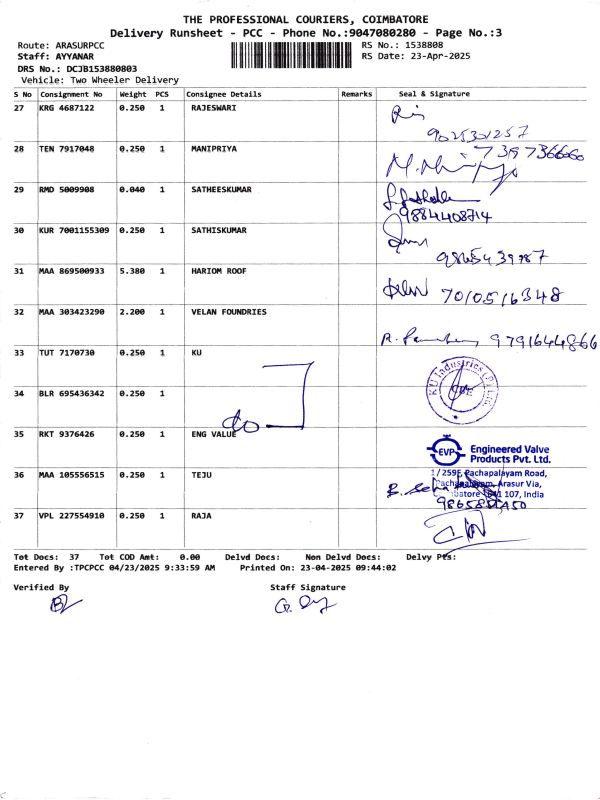 THE PROFESSIONAL COURIERS, COIMBATORE
Delivery Runsheet - PCC - Phone No.:9047080280 - Page No.:3
Route: ARASURPCC RS No.: 1538808
Staff: AYYANAR RS Date: 23-Apr-2025
DRS No.: DCJB153880803
Vehicle: Two Wheeler Delivery
S No Consignment No Weight PCS Consignee Details Remarks Seal & Signature
27 KRG 4687122 0.250 1 RAJESWARI
9025301257
28 TEN 7917048 0.250 1 MANIPRIYA
29 RMD 5009908 0.040 1 SATHEESKUMAR
9884408714
30 KUR 7001155309 0.250 1 SATHISKUMAR
31 MAA 869500933 5.380 1 HARIOM ROOF
7010516348
32 MAA 303423290 2.200 1 VELAN FOUNDRIES
9791644866
33 TUT 7170730 0.250 1 KU
KU Industries (P) Ltd.
34 BLR 695436342 0.250 1
35 RKT 9376426 0.250 1 ENG VALUE
EVP Engineered Valve
Products Pvt. Ltd.
36 MAA 105556515 0.250 1 TEJU
1/259F, Pachapalayam Road,
Arasur Via,
107, India
37 VPL 227554910 0.250 1 RAJA
Tot Docs: 37 Tot COD Amt: 0.00 Delvd Docs: Non Delvd Docs: Delvy Pts:
Entered By :TPCPCC 04/23/2025 9:33:59 AM Printed On: 23-04-2025 09:44:02
Verified By Staff Signature